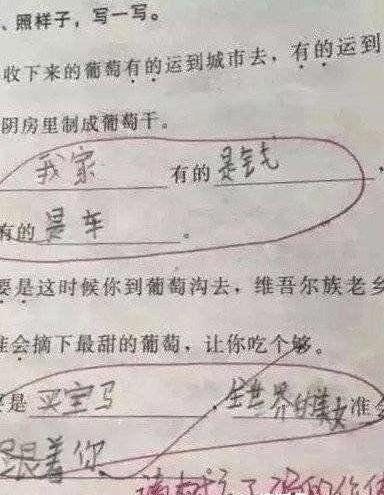 、照样子，写一写。
收下来的葡萄有的运到城市去，有的运到
阴房里制成葡萄干。
我家有的是钱，
有的是车。
要是这时候你到葡萄沟去，维吾尔族老乡
准会摘下最甜的葡萄，让你吃个够。
是买宝马，全世界的美女准会
跟着你